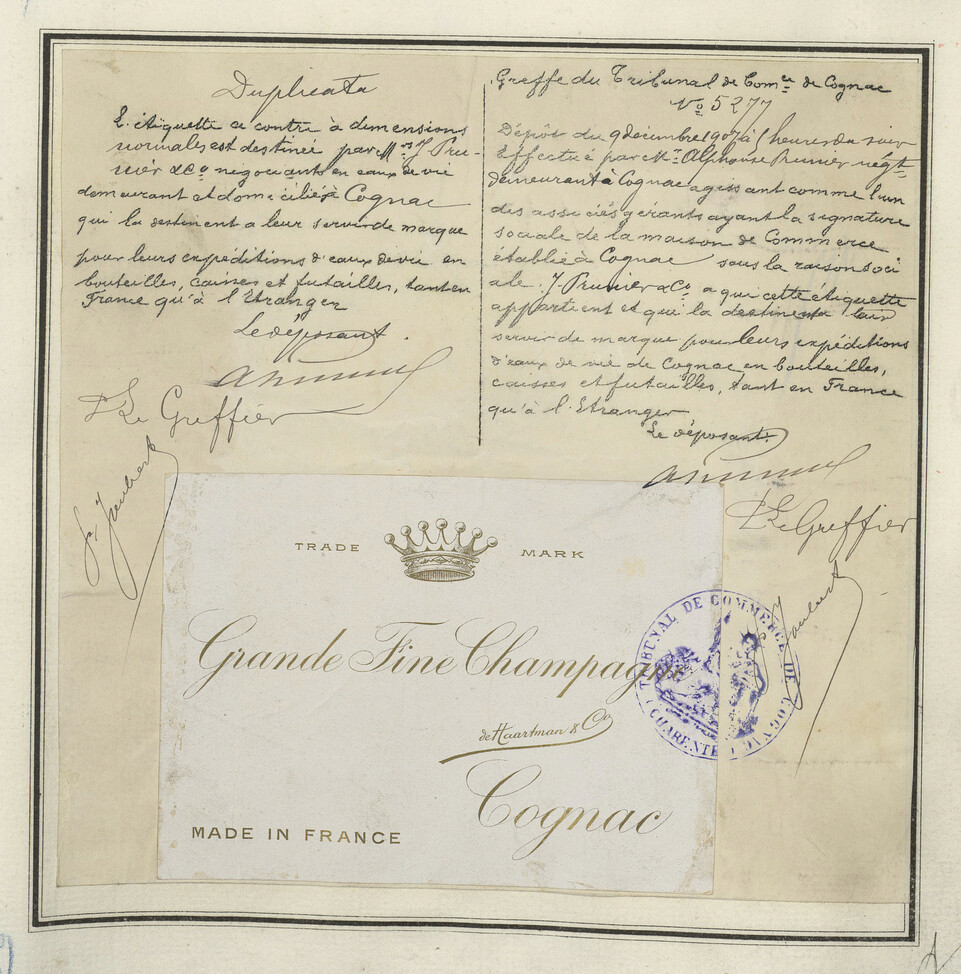 Duplicata
L'étiquette ci contre à dimensions
normales est destinée par Mrs J Pru-
nier & Co négociants en eaux de vie
demeurant et domiciliés à Cognac
qui la destinent a leur servir de marque
pour leurs expéditions d'eaux de vie en
bouteilles, caisses et futailles, tant en
France qu'à l'Etranger
Le déposant.
Le Greffier
Greffe du Tribunal de Comce de Cognac
No 5277
Dépôt du 9 décembre 1907 à heures du soir
Effectué par Mr Alphonse Prunier négt
demeurant à Cognac agissant comme l'un
des associés gérants ayant la signature
sociale de la maison de Commerce
établie à Cognac sous la raison soci
ale J Prunier & Co a qui cette étiquette
appartient et qui la destinent a leur
servir de marque pour leurs expéditions
d'eaux de vie de Cognac en bouteilles,
caisses et futailles, tant en France
qu'à l'Etranger
Le déposant
Le Greffier
TRADE MARK
Grande Fine Champagne
de Haartman & Co
Cognac
MADE IN FRANCE
TRIBUNAL DE COMMERCE DE COGNAC
(CHARENTE)